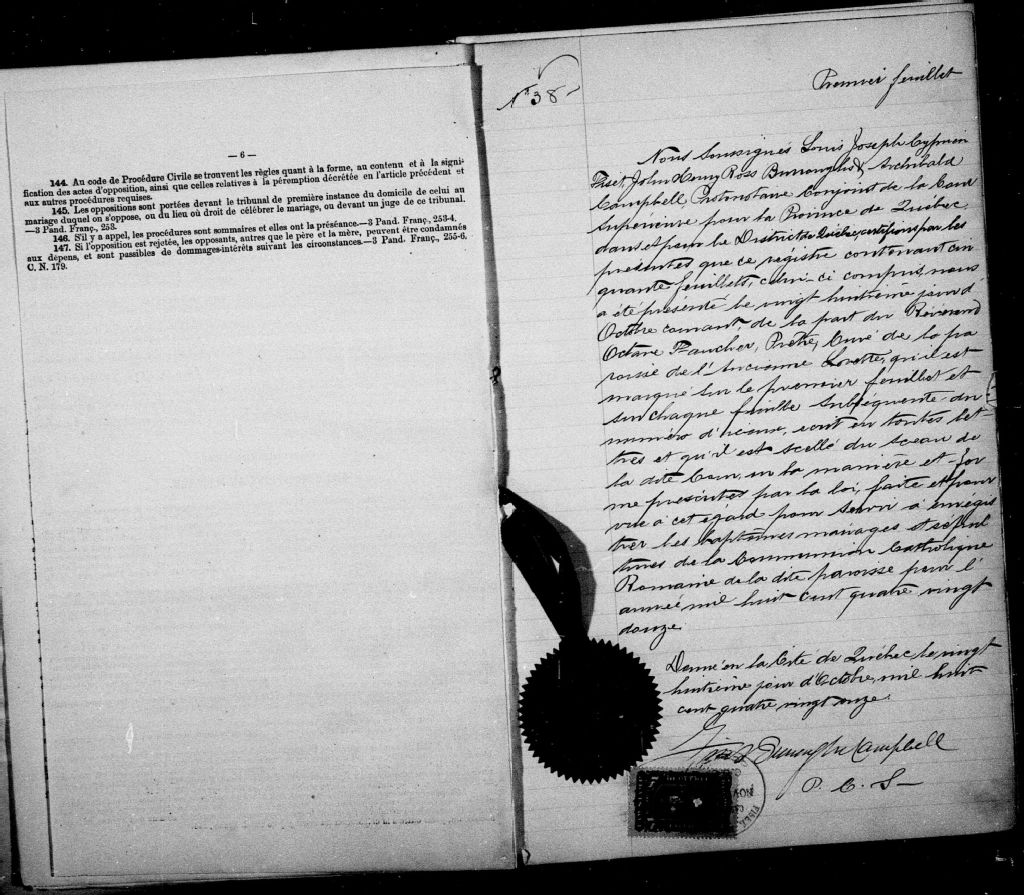 — 6 —
144. Au code de Procédure Civile se trouvent les règles quant à la forme, au contenu et à la signi-
fication des actes d'opposition, ainsi que celles relatives à la péremption décrétée en l'article précédent et
aux autres procédures requises.
145. Les oppositions sont portées devant le tribunal de première instance du domicile de celui au
mariage duquel on s'oppose, ou du lieu où droit de célébrer le mariage, ou devant un juge de ce tribunal.
—3 Pand. Franç., 253.
146. S'il y a appel, les procédures sont sommaires et elles ont la préséance.—3 Pand. Franç., 253-4.
147. Si l'opposition est rejetée, les opposants, autres que le père et la mère, peuvent être condamnés
aux dépens, et sont passibles de dommages-intérêts suivant les circonstances.—3 Pand. Franç., 255-6.
C. N. 179.
No 38
Premier feuillet
Nous Soussignés Louis Joseph Cyprien
Fiset, John Henry Ross Burroughs & Archibald
Campbell Protonotaire Conjoint de la Cour
Supérieure pour la Province de Québec,
dans et pour le District de Québec, certifions par les
presentes que ce registre contenant cin
quante feuillets, celui-ci compris nous
a été présenté le vingt huitième jour d'
Octobre courant, de la part du Révérend
Octave Faucher, Prêtre, Curé de la pa
roisse de l'Ancienne Lorette, qu'il est
marqué sur le premier feuillet et
sur chaque feuille subséquente du
numéro d'icelui, écrit en toutes let-
tres et qu'il est scellé du sceau de
la dite Cour, en la manière et for
me prescrites par la loi, faite et pour
vue à cet égard pour servir à enrégis
trer les baptêmes mariages et sépul
tures de la Communion Catholique
Romaine de la dite paroisse pour l'
année mil huit cent quatre vingt
douze.
Donné en la Cité de Québec le vingt
huitième jour d'Octobre, mil huit
cent quatre vingt onze.
Fiset Burroughs Campbell
P. C. S—